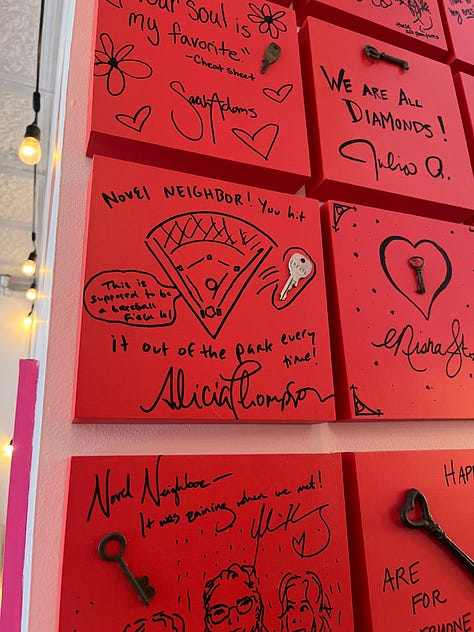 Your Soul is
my favorite."
-Cheat sheet
Sarah Adams
We are All
Diamonds!
Julia Q.
Novel Neighbor! You hit
This is
supposed to be
a baseball
field lol
it out of the park every
time!
Alicia Thompson
Nisha
Novel Neighbor-
It was raining when we met!
HAP
ARE
FOR
EVERYONE